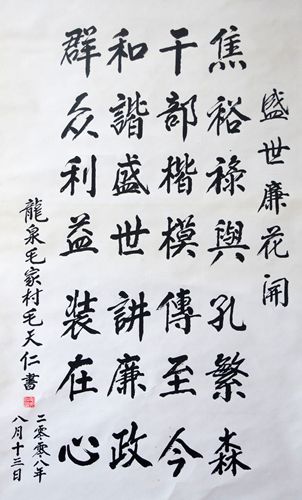 盛世廉花開
焦裕祿與孔繁森
干部楷模傳至今
和諧盛世講廉政
群众利益裝在心
龍泉毛家村毛天仁書
二零零八年
八月十三日